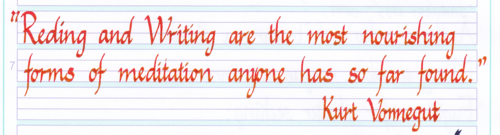 "Reding and Writing are the most nourishing
forms of meditation anyone has so far found."
Kurt Vonnegut